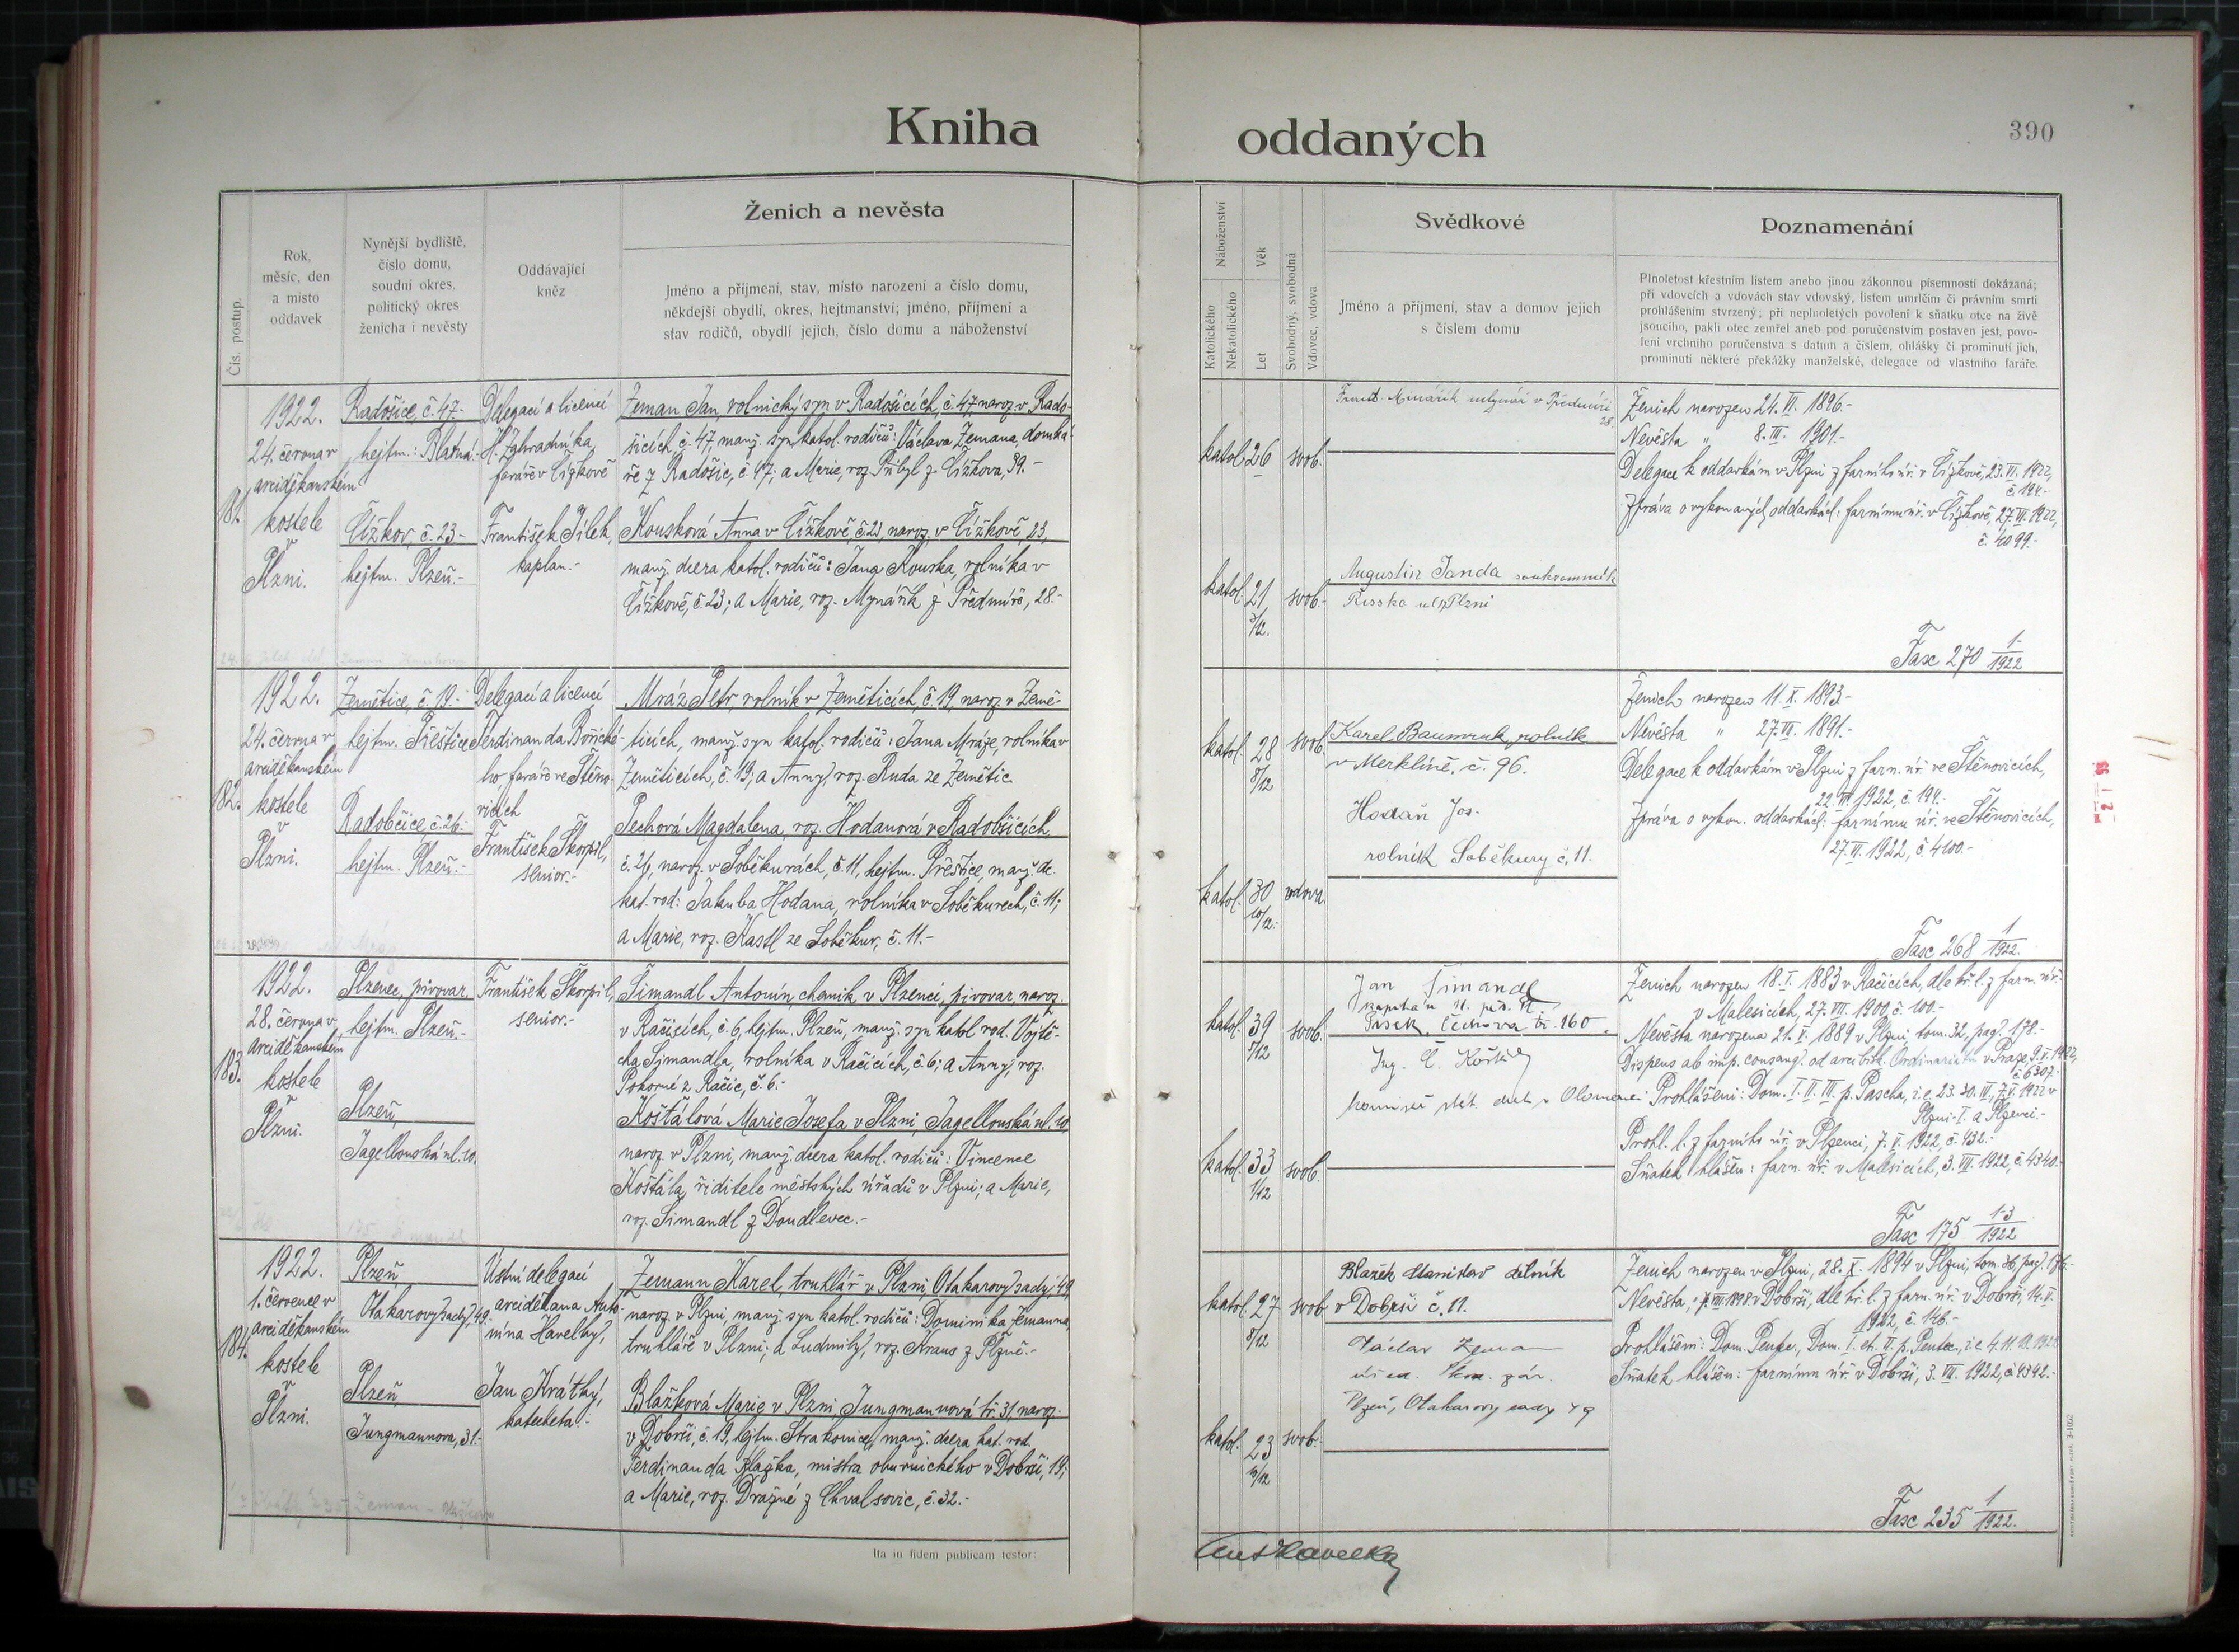 Kniha
oddaných
390
Čís. postup.
Rok,
měsíc, den
a místo
oddavek
Nynější bydliště,
číslo domu,
soudní okres,
politický okres
ženicha i nevěsty
Oddávající
kněz
Ženich a nevěsta
Jméno a příjmení, stav, místo narození a číslo domu,
někdejší obydlí, okres, hejtmanství; jméno, příjmení a
stav rodičů, obydlí jejich, číslo domu a náboženství
Náboženství
Katolického
Nekatolického
Věk
Let
Svobodný, svobodná
Vdovec, vdova
Svědkové
Jméno a příjmení, stav a domov jejich
s číslem domu
Poznamenání
Plnoletost křestním listem anebo jinou zákonnou písemností dokázaná;
při vdovcích a vdovách stav vdovský, listem umrlčím či právním smrti
prohlášením stvrzený; při neplnoletých povolení k sňatku otce na živě
jsoucího, pakli otec zemřel aneb pod poručenstvím postaven jest, povo-
lení vrchního poručenstva s datum a číslem, ohlášky či prominutí jich,
prominutí některé překážky manželské, delegace od vlastního faráře.
181.
1922.
24. června v
arciděkanském
kostele
v
Plzni.
Radošice, č. 47.-
hejtm.: Blatná.-
Čížkov, č. 23-
hejtm. Plzeň.-
Delegací a licencí
H. Zahradníka,
faráře v Čížkově
František Jílek,
kaplan.-
Zeman Jan, rolnický syn v Radošicích, č. 47, naroz. v Rado-
šicích, č. 47, manž. syn katol. rodičů: Václava Zemana, domká-
ře z Radošic, č. 47; a Marie, roz. Přibyl z Čížkova, 39.-
Kousková Anna v Čížkově, č. 23, naroz. v Čížkově, 23,
manž. dcera katol. rodičů: Jana Kouska, rolníka v
Čížkově, č. 23; a Marie, roz. Mynářík z Předmíře, 28.-
katol. 26 svob.
katol. 21 svob.-
3/12.
mlynář v Předmíři
28.
Augustin Janda soukromník
v Plzni
Ženich narozen 24. VI. 1896.-
Nevěsta " 8. III. 1901.-
Delegace k oddavkám v Plzni z farního úř. v Čížkově, 23. VI. 1922,
č. 194.-
Zpráva o vykonaných oddavkách: farnímu úř. v Čížkově, 27. VI. 1922,
č. 4099.-
Fasc 270 1/1922
182.
1922.
24. června v
arciděkanském
kostele
v
Plzni.
Zemětice, č. 19.-
hejtm. Přeštice
Radobčice, č. 26.-
hejtm. Plzeň.-
Delegací a licencí
Ferdinanda Bořické-
ho, faráře ve Štěno-
vicích
František Škorpil,
senior.-
Mráz Petr, rolník v Zeměticích, č. 19, naroz. v Země-
ticích, manž. syn katol. rodičů: Jana Mráze, rolníka v
Zeměticích, č. 19; a Anny, roz. Ruda ze Zemětic
Pechová Magdalena, roz. Hodanová v Radobčicích,
č. 26, naroz. v Soběkurách, č. 11, hejtm. Přeštice, manž. dc.
kat. rod: Jakuba Hodana, rolníka v Soběkurech, č. 11;
a Marie, roz. Kastl ze Soběkur, č. 11.-
katol. 28 svob.
8/12
katol. 30 vdova.
10/12.
Karel Baumruk, rolník
v Merklíně, č. 96.
Hodaň Jos.
rolník Soběkury č. 11.
Ženich narozen 11. X. 1893-
Nevěsta " 27. VII. 1891.-
Delegace k oddavkám v Plzni z farn. úř. ve Štěnovicích,
22. VI. 1922, č. 194.-
Zpráva o vykon. oddavkách: farnímu úř. ve Štěnovicích,
27. VI. 1922, č. 4100.-
Fasc 268 1/1922.
183.
1922.
28. června v
arciděkanském
kostele
v
Plzni.
Plzenec, pivovar
hejtm. Plzeň.-
Plzeň,
Jagellonská ul. 10.
František Škorpil,
senior.-
Šimandl Antonín, chemik v Plzenci, pivovar, naroz.
v Račicích, č. 6, hejtm. Plzeň, manž. syn katol. rod. Vojtě-
cha Šimandla, rolníka v Račicích, č. 6; a Anny, roz.
Pokorné z Račic, č. 6.-
Košťálová Marie Josefa v Plzni, Jagellonská ul. 10,
naroz. v Plzni, manž. dcera katol. rodičů: Vincence
Košťála, ředitele městských úřadů v Plzni; a Marie,
roz. Šimandl z Doudlevec.-
katol. 39 svob.
5/12
katol. 33 svob.
1/12
Jan Šimandl
kapitán
Písek, Čechova tř. 160.
Ing. Č.
v Olomouci
Ženich narozen 18. I. 1883 v Račicích, dle kř. l. z farn. úř.
v Malesicích, 27. VII. 1900, č. 100.-
Nevěsta narozena 21. V. 1889 v Plzni, tom. 32, pag. 178.-
Dispens ab imp. consang. od arcibisk. Ordinariátu v Praze, 9. V. 1922,
č. 6307.-
Prohlášeni: Dom. I. II. III. p. Pascha, i. e. 23. 30. IV. 7. V. 1922 v
Plzni-I. a Plzenci.-
Prohl. l. z farního úř. v Plzenci, 7. V. 1922, č. 432.-
Sňatek hlášen: farn. úř. v Malesicích, 3. VII. 1922, č. 4340.-
Fasc 175 1-3/1922
184.
1922.
1. července v
arciděkanském
kostele
v
Plzni.
Plzeň
Otakarovy sady, 49.
Plzeň,
Jungmannova, 31.-
Ústní delegací
arciděkana Anto-
nína Havelky,
Jan Krátký,
katecheta.-
Zemann Karel, truhlář v Plzni, Otakarovy sady, 49
naroz. v Plzni, manž. syn katol. rodičů: Dominika Zemanna,
truhláře v Plzni; a Ludmily, roz. Kraus z Plzně.-
Blažková Marie v Plzni, Jungmannová tř. 31, naroz.
v Dobrši, č. 19, hejtm. Strakonice, manž. dcera kat. rod.
Ferdinanda Blažka, mistra obuvnického v Dobrši, 19;
a Marie, roz. Dražné z Chvalšovic, č. 32.-
katol. 27 svob.
8/12
katol. 23 svob.-
Blažek Stanislav dělník
v Dobrši č. 11.
Václav Zeman
Plzeň, Otakarovy sady 49
Ženich narozen v Plzni, 28. X. 1894 v Plzni, tom. 36, pag. 176.-
Nevěsta, VIII. 1898. v Dobrši, dle kř. l. z farn. úř. v Dobrši, 14. V.
1922, č. 146.-
Prohlášeni: Dom. Pentec., Dom. I. et. II. p. Pentec., i. e. 4. 11. 18.
Sňatek hlášen: farnímu úř. v Dobrši, 3. VII. 1922, č. 4342.-
Fasc 235 1/1922.
Ita in fidem publicam testor:
Ant Havelka